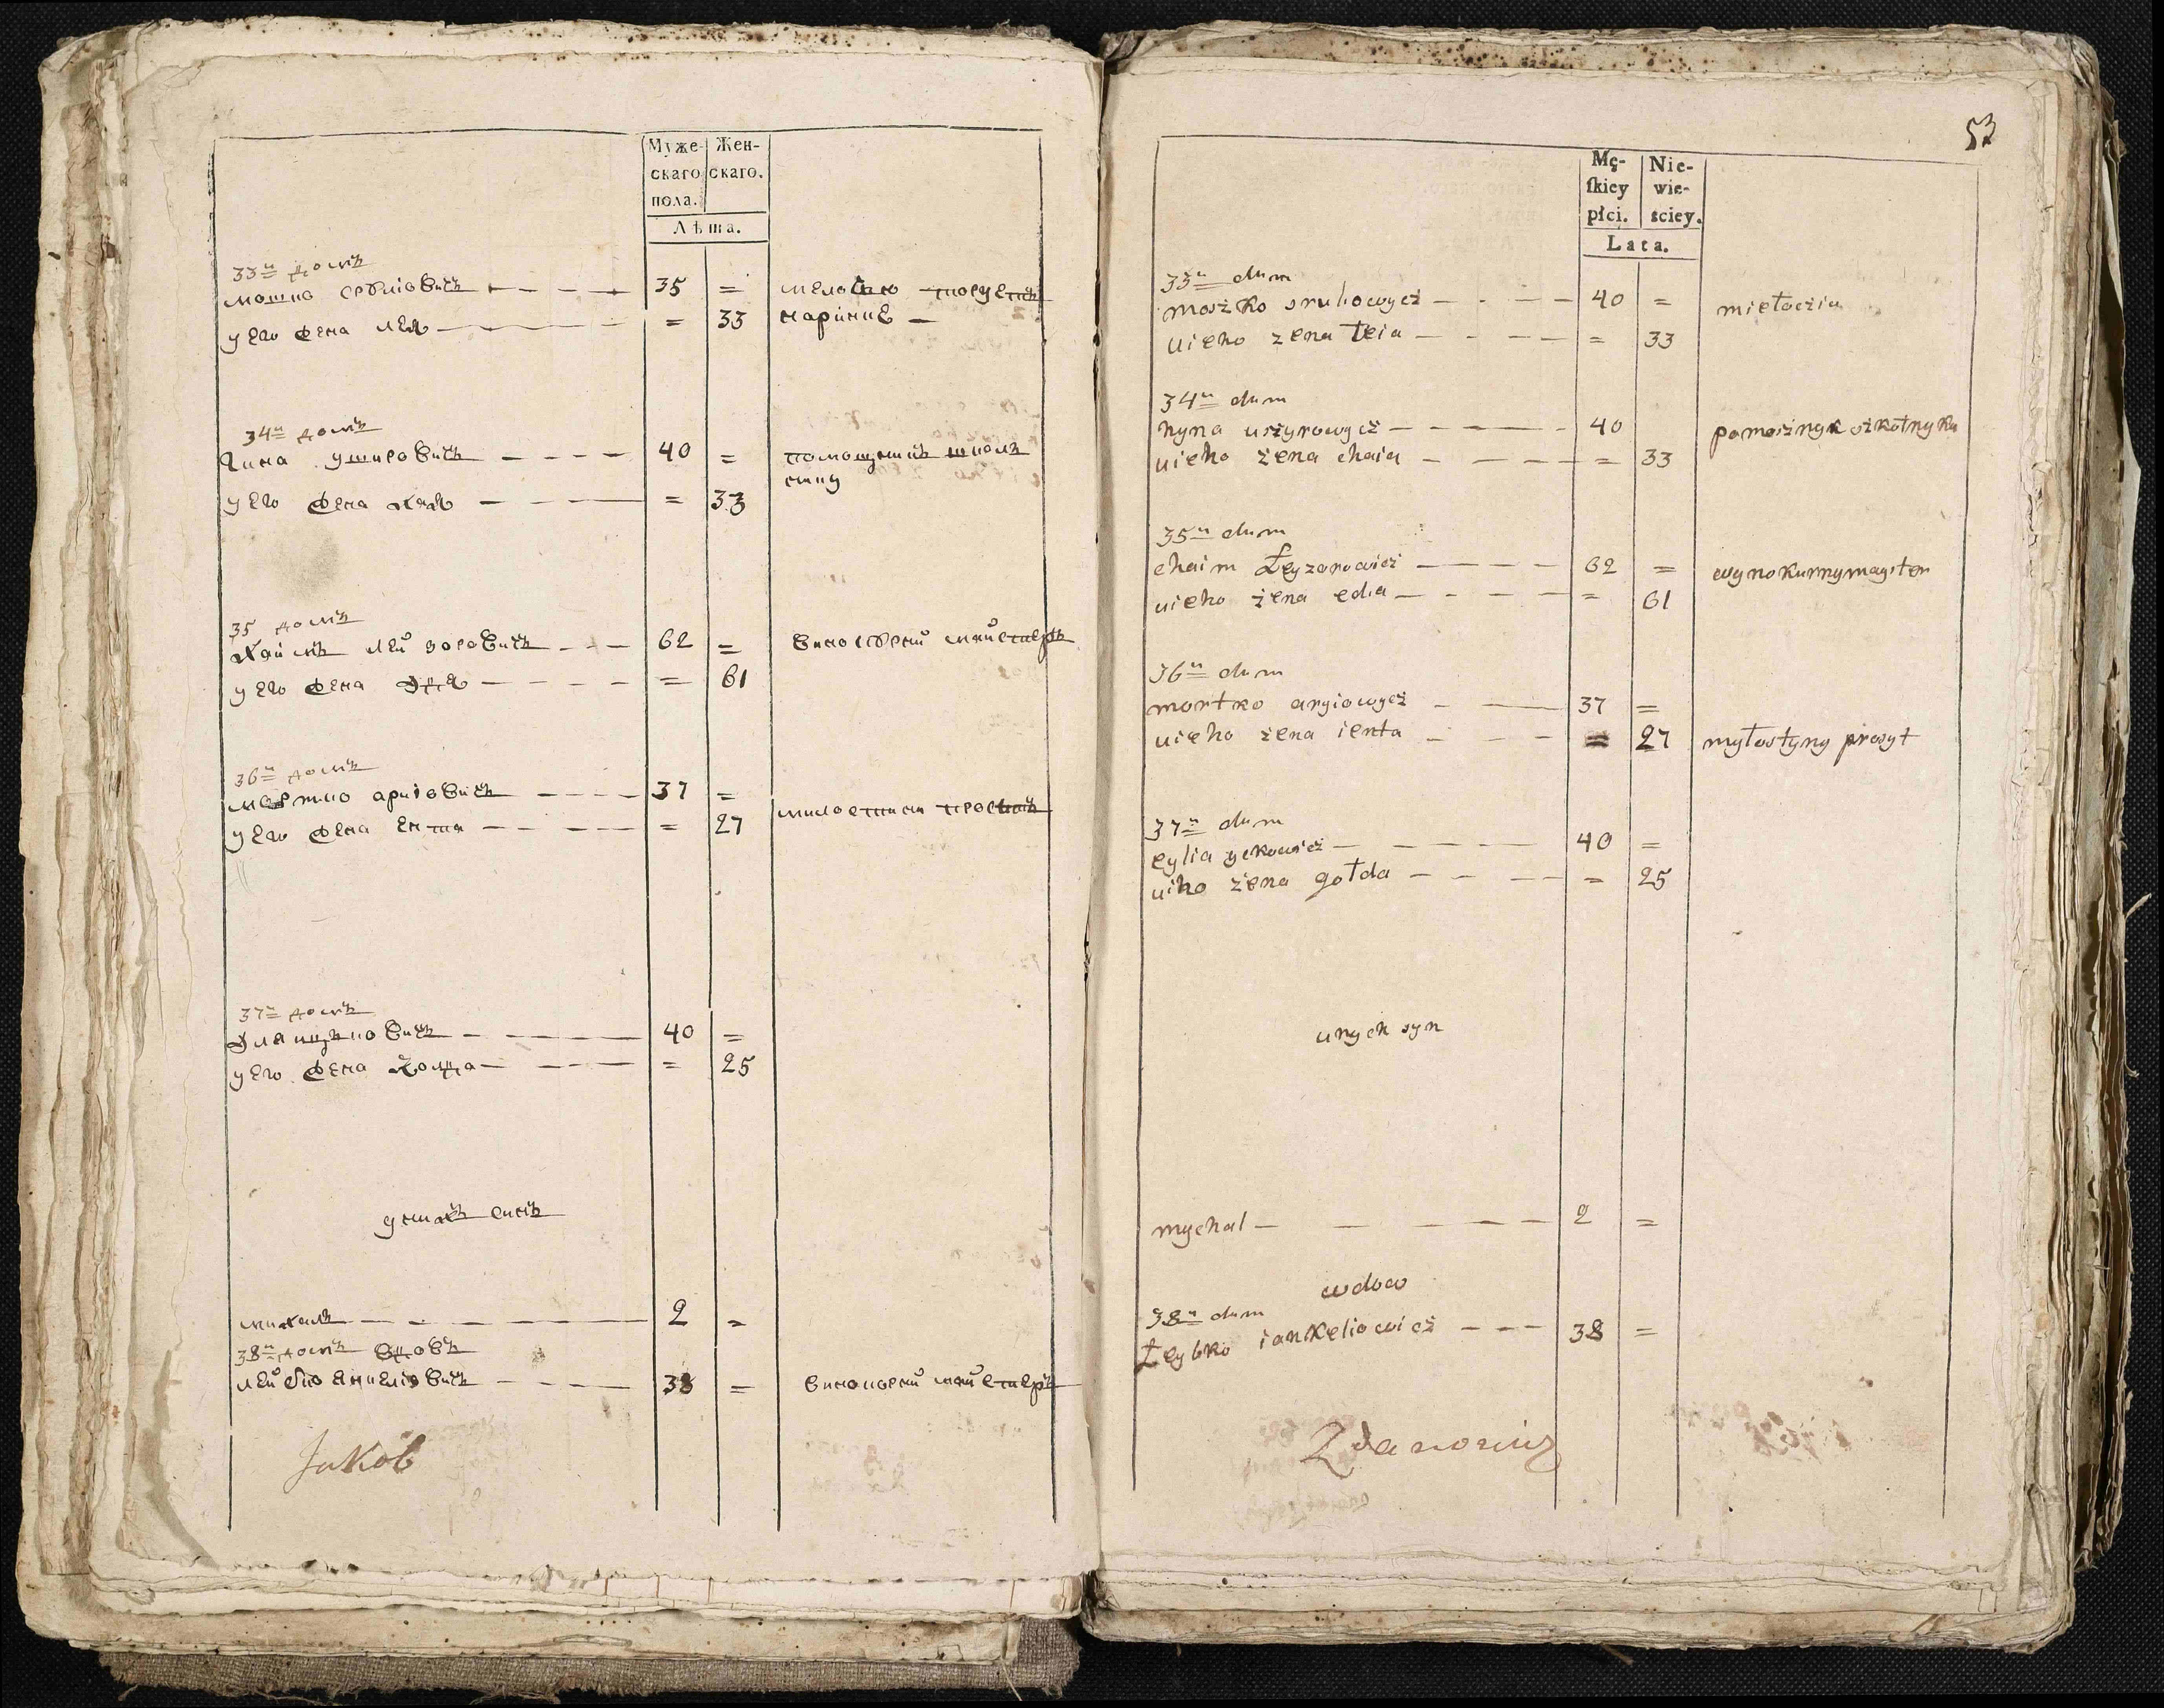 Муже-
скаго
пола.
Жен-
скаго.
Лѣта.
33й домъ
мошко сруліовичъ 35 = мелочью торуетъ
у его жена лея = 33 наринке
34й домъ
гина ушировичъ 40 = помощникъ школъ
нику
у его жена хая = 33
35 домъ
хаимъ лейзоровичъ 62 = винокурни майстеръ
у его жена эдя = 61
36й домъ
мортко аріовичъ 37 =
милостини проситъ
у его жена ента = 27
37й домъ
эля ицковичъ 40 =
у его жена голда 25
у нихъ синъ
михаль 2 =
38й домъ вдовъ
лейбко янкеліовичъ 38 = винокурни майстеръ
Jakób
53
Mę-
skiey
płci.
Nie-
wie-
sciey.
Lata.
33й dum
moszko sruliowycz 40 = miełoczia
uieho zena łeia = 33
34й dum
hyna uszyrowycz 40 pomosznyk szkołnyku
uieho żena chaia = 33
35й dum
chaim Łeyzerowicz 62 = wynokurnymayster
uieho żena edia = 61
36й dum
mortko aryiowycz 37 =
uieho żena ienta = 27 myłostyny prosyt
37й dum
eylia yckowicz 40 =
uiho żena gołda = 25
unych syn
mychal 2 =
wdow
38й dum
Łeybko iankieliowicz 38 =
Zdanowicz